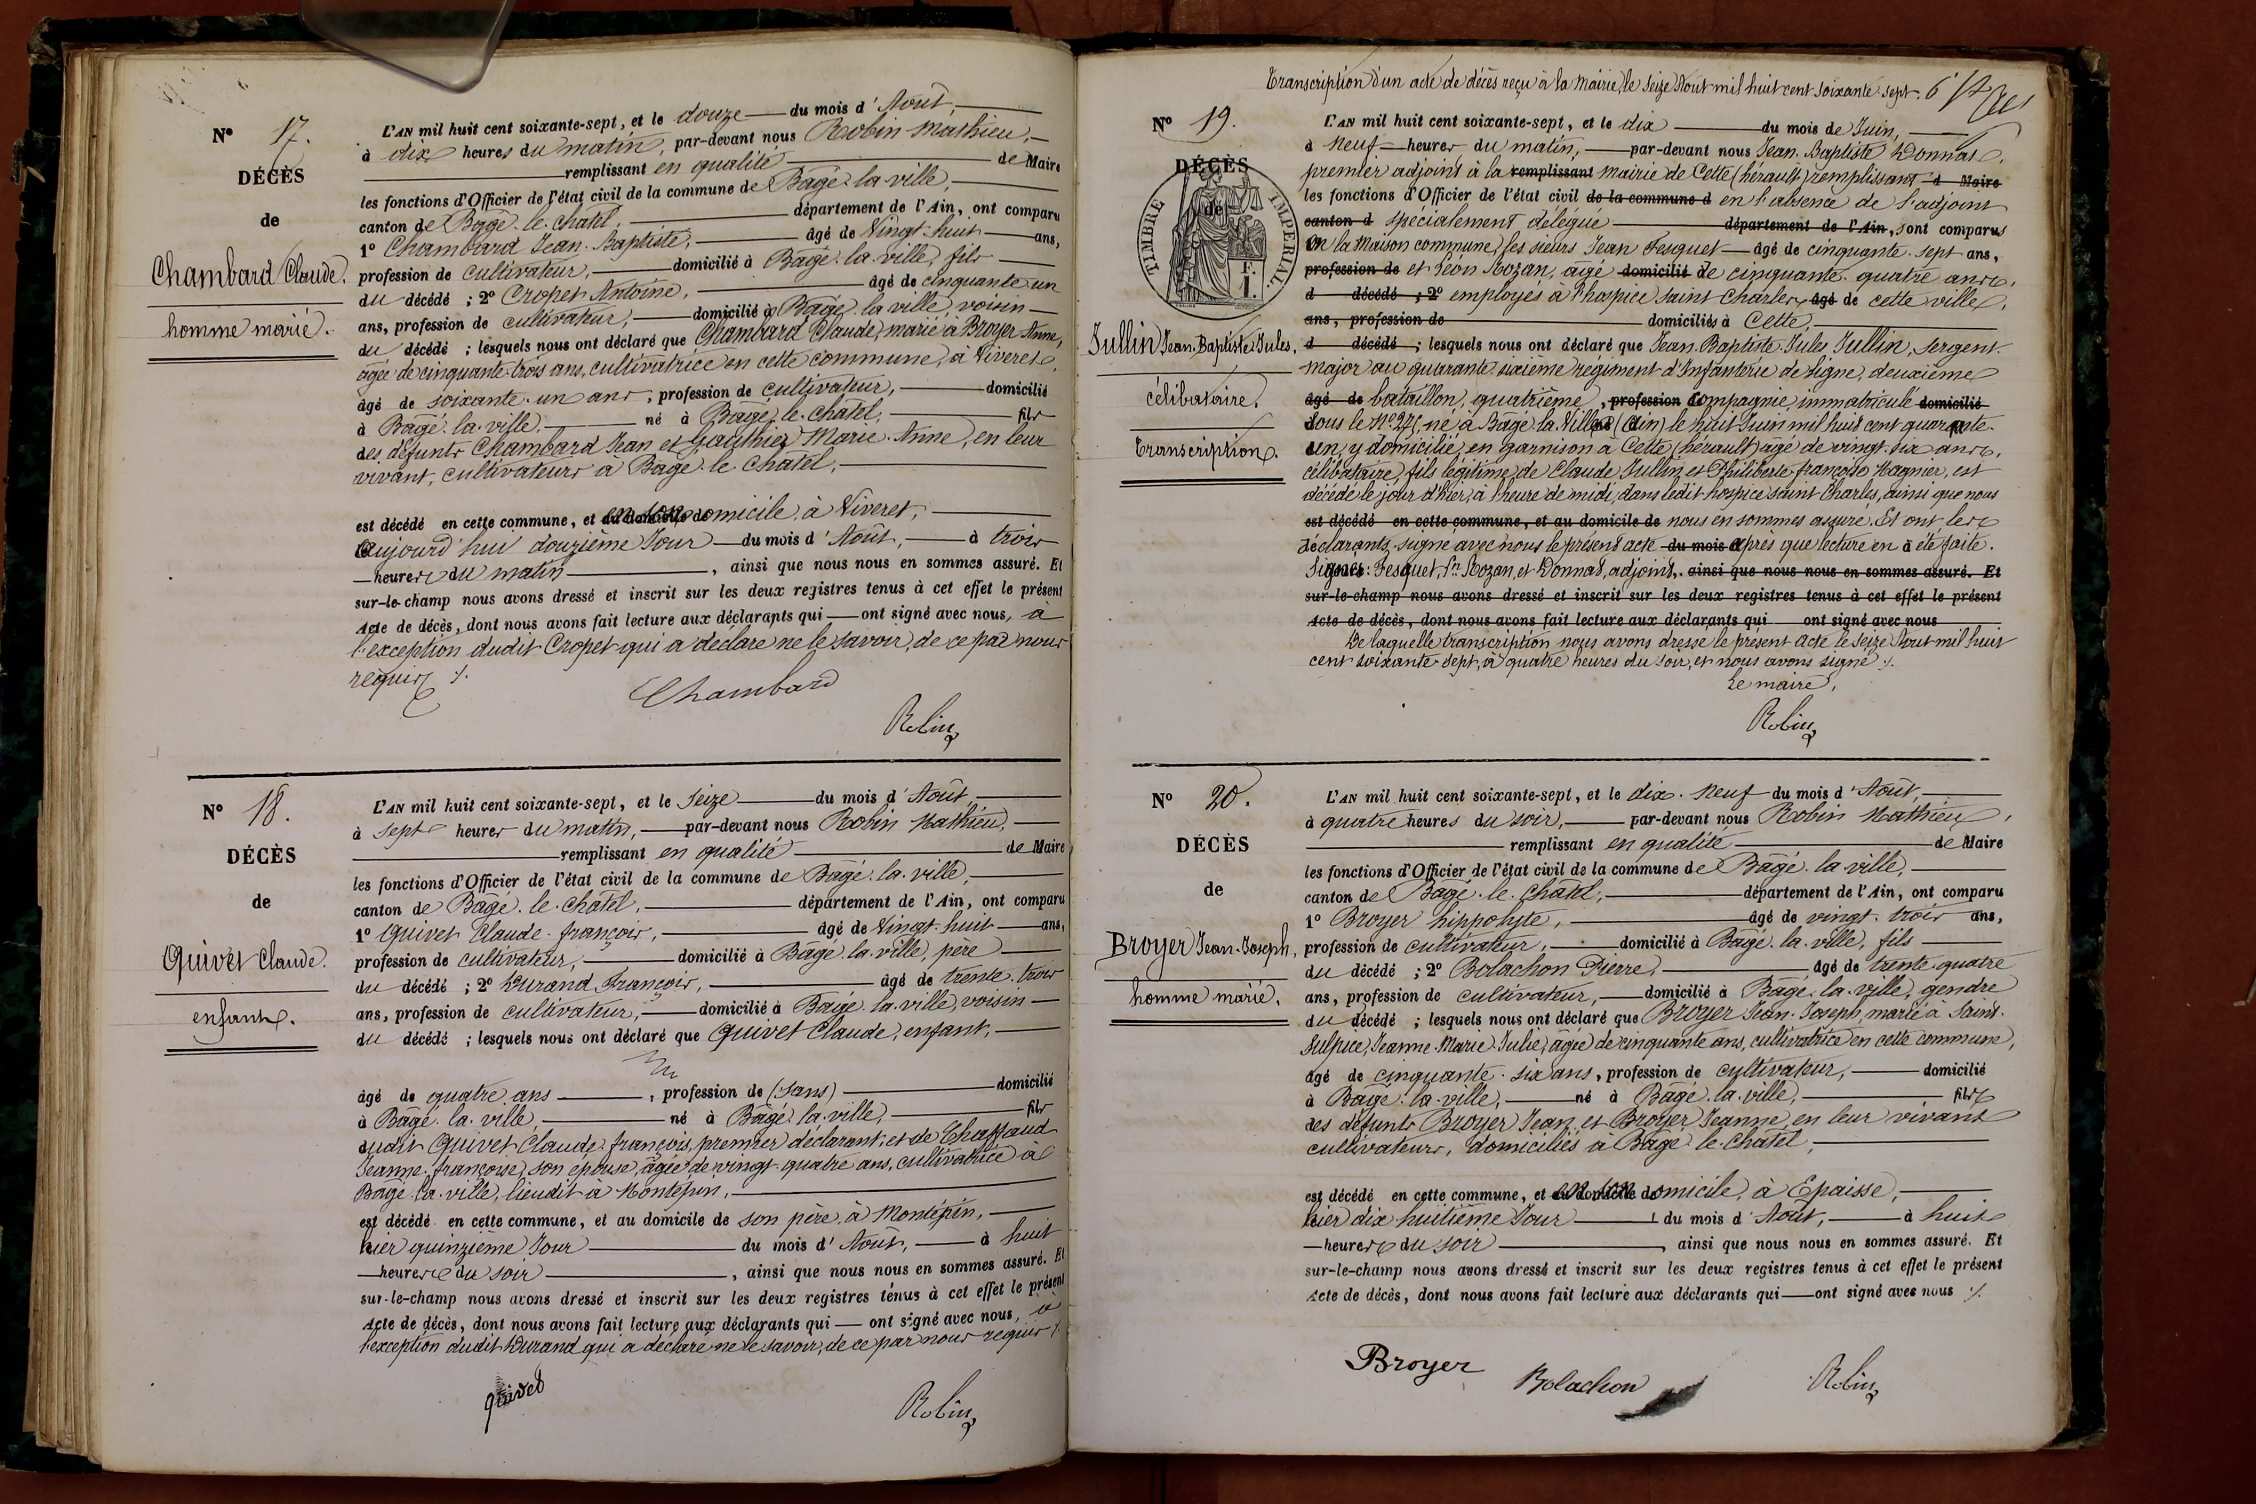 N° 17.
DÉCÈS
de
Chambard Claude.
homme marié.
L'AN mil huit cent soixante-sept, et le douze du mois d'Août,
à dix heures du matin, par-devant nous Robin Mathieu,
remplissant en qualité de Maire
les fonctions d'Officier de l'état civil de la commune de Bâgé-la-ville,
canton de Bâgé-le-châtel, département de l'Ain, ont comparu
1° Chambard Jean-Baptiste, âgé de vingt-huit ans,
profession de cultivateur, domicilié à Bâgé-la-ville, fils
du décédé ; 2° Cropet Antoine, âgé de cinquante un
ans, profession de cultivateur, domicilié à Bâgé-la-ville, voisin
du décédé ; lesquels nous ont déclaré que Chambard Claude, marié à Broyer Anne,
âgée de cinquante-trois ans, cultivatrice en cette commune, à Viveret,
âgé de soixante-un ans, profession de cultivateur, domicilié
à Bâgé-la-ville, né à Bâgé-le-châtel, fils
des défunts Chambard Jean et Gauthier Marie-Anne, en leur
vivant, cultivateurs à Bâgé-le-châtel,
est décédé en cette commune, et en son domicile, à Viveret,
aujourd'hui douzième Jour du mois d'Août, à trois
heures du matin, ainsi que nous nous en sommes assuré. Et
sur-le-champ nous avons dressé et inscrit sur les deux registres tenus à cet effet le présent
Acte de décès, dont nous avons fait lecture aux déclarants qui ont signé avec nous, à
l'exception dudit Cropet qui a déclaré ne le savoir, de ce par nous
requis ./.
Chambard
Robin
N° 18.
DÉCÈS
de
Quivet Claude.
enfant.
L'AN mil huit cent soixante-sept, et le Seize du mois d'Août
à sept heures du matin, par-devant nous Robin Mathieu,
remplissant en qualité de Maire
les fonctions d'Officier de l'état civil de la commune de Bâgé-la-ville,
canton de Bâgé-le-châtel, département de l'Ain, ont comparu
1° Quivet Claude-françois, âgé de vingt-huit ans,
profession de cultivateur, domicilié à Bâgé-la-ville, père
du décédé ; 2° Durand François, âgé de trente-trois
ans, profession de cultivateur, domicilié à Bâgé-la-ville, voisin
du décédé ; lesquels nous ont déclaré que Quivet Claude, enfant,
âgé de quatre ans, profession de (sans) domicilié
à Bâgé-la-ville, né à Bâgé-la-ville, fils
dudit Quivet Claude-françois, premier déclarant, et de Chaffaud
Jeanne-françoise, son épouse, âgée de vingt-quatre ans, cultivatrice à
Bâgé-la-ville, lieudit à Montépin,
est décédé en cette commune, et au domicile de son père, à Montépin,
hier quinzième Jour du mois d'Août, à huit
heures du soir, ainsi que nous nous en sommes assuré. Et
sur-le-champ nous avons dressé et inscrit sur les deux registres tenus à cet effet le présent
Acte de décès, dont nous avons fait lecture aux déclarants qui ont signé avec nous, à
l'exception dudit Durand qui a déclaré ne le savoir, de ce par nous requis ./.
quivet
Robin
Transcription d'un acte de décès reçu à la Mairie, le seize Août mil huit cent soixante-sept.
N° 19.
DÉCÈS
de
TIMBRE IMPERIAL.
F.
1.
Jullin Jean-Baptiste-Jules,
célibataire.
Transcription.
L'AN mil huit cent soixante-sept, et le dix du mois de Juin,
à neuf heures du matin, par-devant nous Jean-Baptiste Donnat,
premier adjoint à la remplissant mairie de Cette (hérault) remplissant d Maire
les fonctions d'Officier de l'état civil de la commune d en l'absence de l'adjoint
canton d spécialement délégué département de l'Ain, sont comparus
en la Maison commune, les sieurs Jean Fesquet âgé de cinquante-sept ans,
profession de et Léon Rozan, âgé domicilié de cinquante-quatre ans,
d décédé ; 2° employés à l'hospice saint Charles âgé de cette ville,
ans, profession de domiciliés à Cette,
d décédé ; lesquels nous ont déclaré que Jean-Baptiste-Jules Jullin, sergent-
major au quarante-sixième régiment d'Infanterie de ligne, deuxième
âgé de bataillon, quatrième, profession Compagnie, immatriculé domicilié
sous le N° 275, né à Bâgé-la-Ville (Ain) le huit Juin mil huit cent quarante-
un, y domicilié, en garnison à Cette (hérault) âgé de vingt-six ans,
célibataire, fils légitime de Claude Jullin et Philiberte-françoise Magnier, est
décédé le jour d'hier, à l'heure de midi, dans ledit hospice saint Charles, ainsi que nous
est décédé en cette commune, et au domicile de nous en sommes assuré. Et ont, les
déclarants, signé avec nous le présent acte du mois après que lecture en a été faite.
Signés : Fesquet, Ln Rozan, et Donnat, adjoint. ainsi que nous nous en sommes assuré. Et
sur-le-champ nous avons dressé et inscrit sur les deux registres tenus à cet effet le présent
Acte de décès, dont nous avons fait lecture aux déclarants qui ont signé avec nous
De laquelle transcription nous avons dressé le présent acte le seize Août mil huit
cent soixante-sept, à quatre heures du soir, et nous avons signé ./.
Le maire,
Robin
N° 20.
DÉCÈS
de
Broyer Jean-Joseph,
homme marié.
L'AN mil huit cent soixante-sept, et le dix-neuf du mois d'Août,
à quatre heures du soir, par-devant nous Robin Mathieu,
remplissant en qualité de Maire
les fonctions d'Officier de l'état civil de la commune de Bâgé-la-ville,
canton de Bâgé-le-châtel, département de l'Ain, ont comparu
1° Broyer hippolyte, âgé de vingt-trois ans,
profession de cultivateur, domicilié à Bâgé-la-ville, fils
du décédé ; 2° Bolachon Pierre, âgé de trente-quatre
ans, profession de cultivateur, domicilié à Bâgé-la-ville, gendre
du décédé ; lesquels nous ont déclaré que Broyer Jean-Joseph, marié à Saint-
Sulpice, Jeanne-Marie-Julie, âgée de cinquante ans, cultivatrice en cette commune,
âgé de cinquante-six ans, profession de cultivateur, domicilié
à Bâgé-la-ville, né à Bâgé-la-ville, fils
des défunts Broyer Jean et Broyer Jeanne, en leur vivant
cultivateurs, domiciliés à Bâgé-le-châtel,
est décédé en cette commune, et en son domicile, à Epaisse,
hier dix-huitième Jour du mois d'Août, à huit
heures du soir, ainsi que nous nous en sommes assuré. Et
sur-le-champ nous avons dressé et inscrit sur les deux registres tenus à cet effet le présent
Acte de décès, dont nous avons fait lecture aux déclarants qui ont signé avec nous ./.
Broyer
Bolachon
Robin